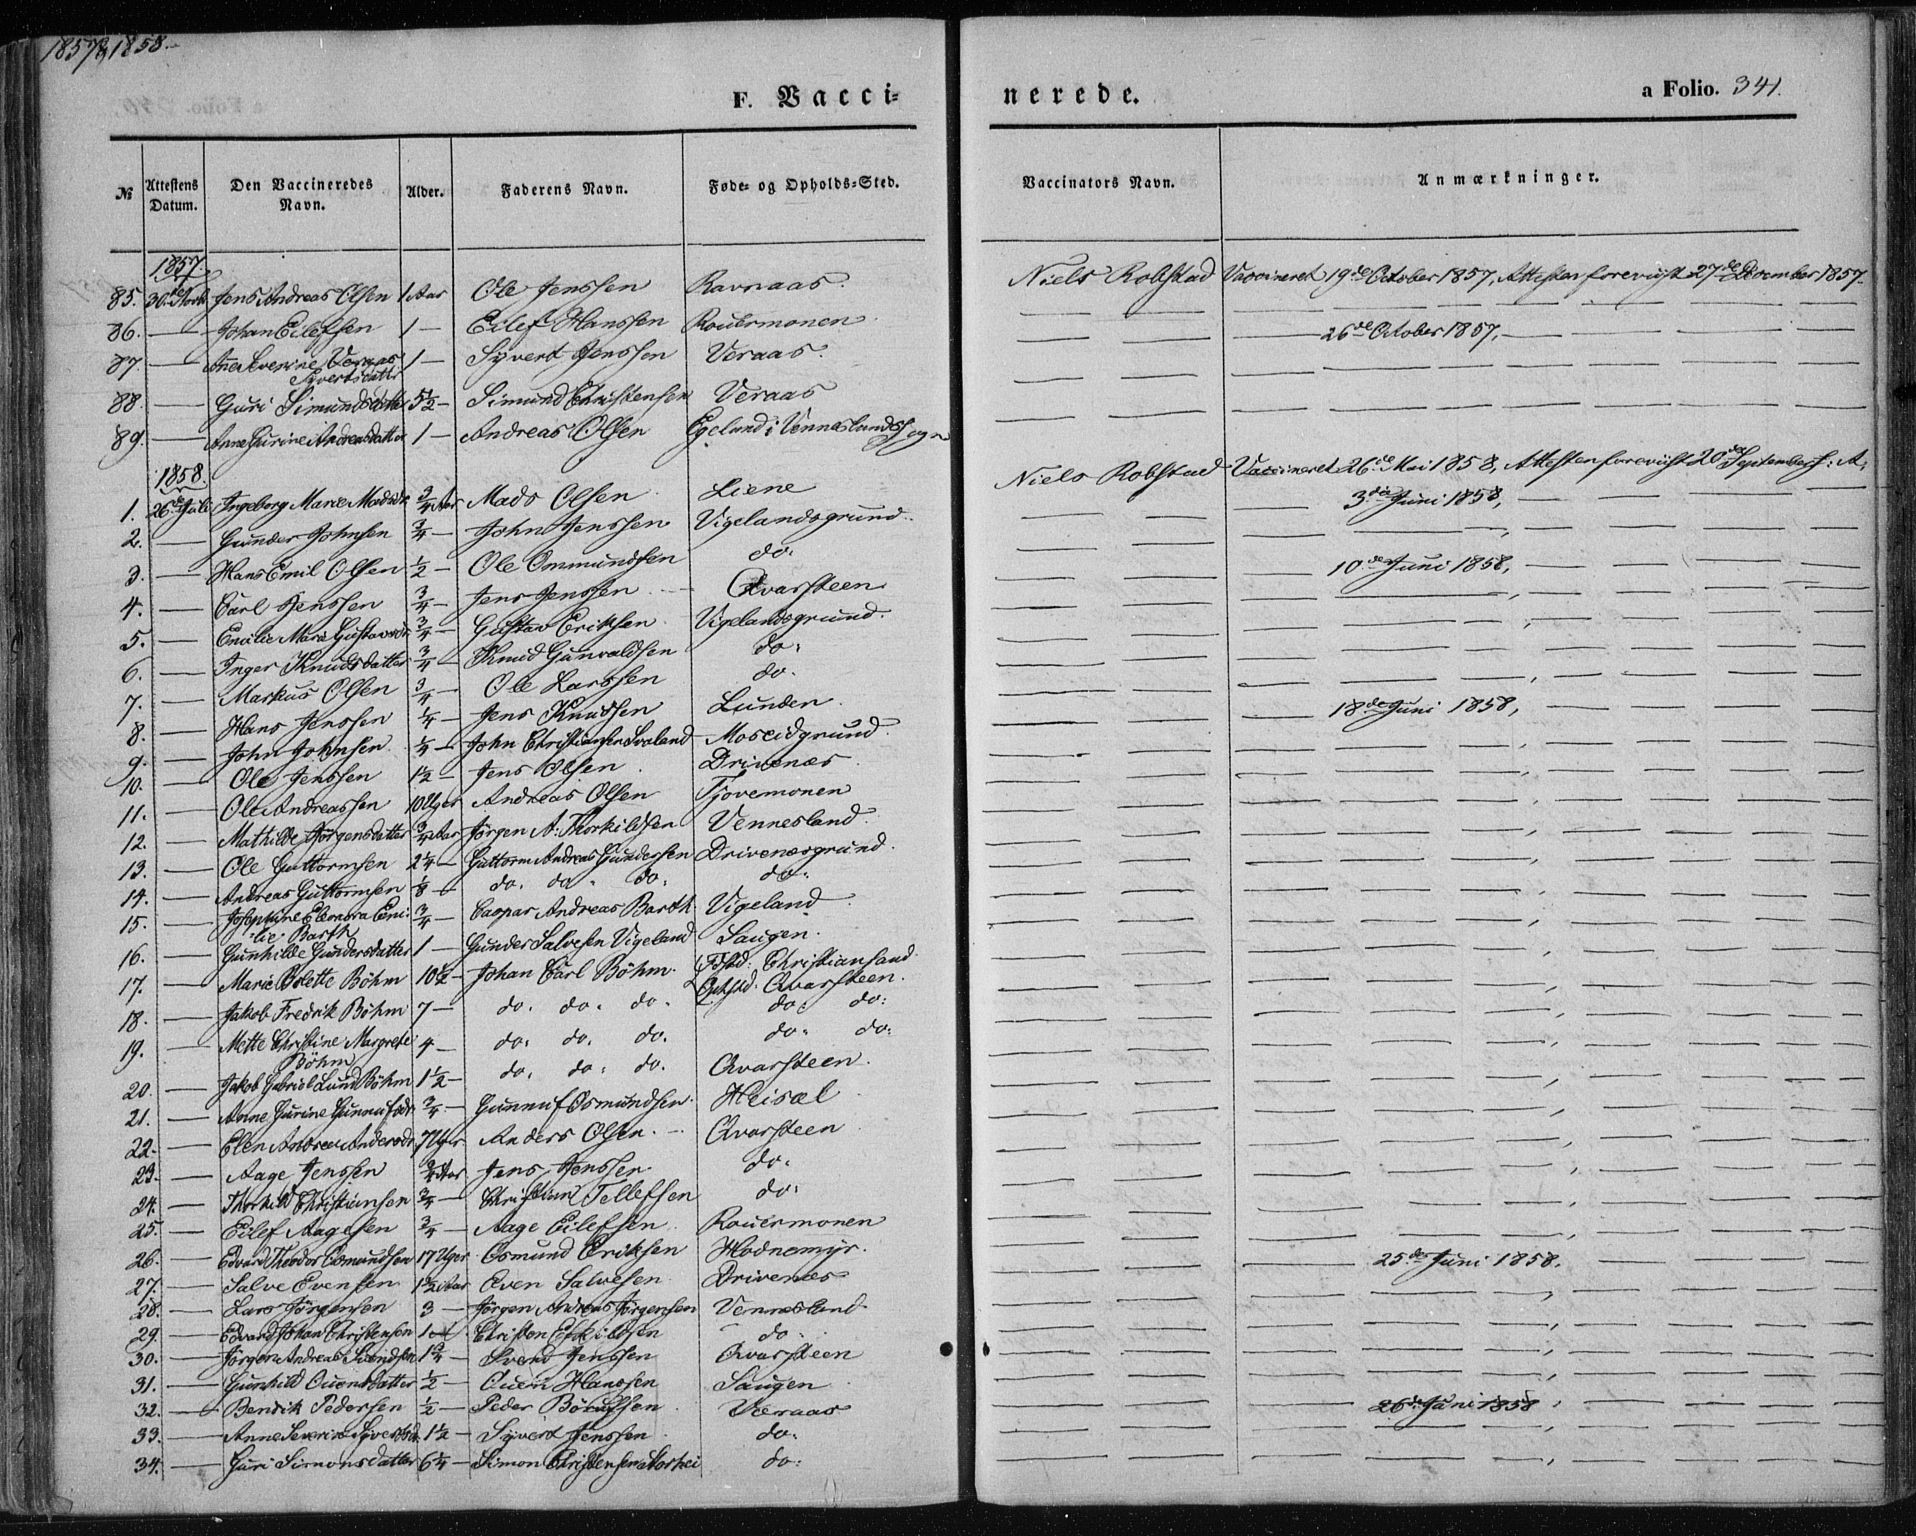 1857 & 1858.
F. Vacci=
nerede.
a Folio. 341.
№ Attestens Datum. Den Vaccineredes Navn. Alder. Faderens Navn. Føde- og Opholds-Sted. Vaccinators Navn. Anmærkninger.
1857.
85. 30de Novb Jens Andreas Olsen 1 Aar Ole Jenssen Ravnaas. Niels Robstad Vaccineret 19de October 1857, Attesten foreviist 27de December 1857
86. — Johan Eilefsen 1 — Eilef Hanssen Rouermonen — — — — —
87. — Ane Severine Veraas Syvertsdatter 1 — Syvert Jenssen Veraas. — — — 26de October 1857, — — —
88. — Guri Simundsdatter 5½ — Simund Christensen Veraas — — — — —
89. — Anne Gurine Andreasdatter 1 — Andreas Olsen Egeland i Venneslands Sogn — — — — —
1858.
1. 26de Juli Ingeborg Marie Madsdt ¾ Aar Mads Olsen Liene Niels Robstad Vaccineret 26de Mai 1858, Attesten foreviist 20de September s: A:
2. — Gunder Johnsen ¾ — John Jenssen Vigelandsgrund — — — 3die Juni 1858, — — —
3. — Hans Emil Olsen ½ — Ole Ommundsen do. — — — — —
4. — Carl Jenssen ¾ — Jens Jenssen Qvarsteen — — — 10de Juni 1858, — — —
5. — Emilie Marie Gustavsdt ¾ — Gustav Eriksen Vigelandsgrund. — — — — —
6. — Inger Knudsdatter ¾ — Knud Gunvaldsen do. — — — — —
7. — Markus Olsen ¾ — Ole Larssen do. — — — — —
8. — Hans Jenssen ¼ — Jens Knudsen Lunden — — — 18de Juni 1858, — — —
9. — John Johnsen ¼ — John Christiansen Svaland Moseidgrund — — — — —
10. — Ole Jenssen 1½ — Jens Olsen Drivenæs — — — — —
11. — Ole Andreassen 10 Uger Andreas Olsen Tjovemonen — — — — —
12. — Mathilde Jørgensdatter ¾ Aar Jørgen A: Thorkildsen Vennesland — — — — —
13. — Ole Guttormsen 2¼ — Guttorm Andreas Gundersen Drivenæsgrund — — — — —
14. — Andreas Guttormsen ⅛ — do. do. do. do. — — — — —
15. — Josephine Eleonora Emilie Barth ¾ — Caspar Andreas Barth Vigeland — — — — —
16. — Gunhilde Gundersdatter 1 — Gunder Salvesen Vigeland Saugen. — — — — —
17. — Marie Bolette Böhm 10½ — Johan Carl Böhm. Fdstd: Christiansand Ophstd: Qvarsteen. — — — — —
18. — Jakob Fredrik Böhm 7 — do. do. do. do: do: — — — — —
19. — Mette Christine Margrete Böhm 4 — do. do. do. do. do: — — — — —
20. — Jakob Gabriel Lund Böhm 1½ — do. do. do. Qvarsteen — — — — —
21. — Anne Gurine Gunnufsdt ¾ — Gunnuf Osmundsen Heisæl — — — — —
22. — Elen Andrea Andersdt 7 Uger Anders Olsen Qvarsteen — — — — —
23. — Aage Jenssen ¾ Aar Jens Jenssen do. — — — — —
24. — Thorkild Christiansen ¾ — Christian Tellefsen do. — — — — —
25. — Eilef Aagesen ¾ — Aage Eilefsen Rouermonen — — — — —
26. — Edvard Theodor Osmundsen 17 Uger Osmund Eriksen Hodnemyr. — — — — —
27. — Salve Evensen 1½ Aar Even Salvesen Drivenæs — — — 25de Juni 1858. — — —
28. — Lars Jørgensen 3 — Jørgen Andreas Jørgensen Vennesland — — — — —
29. — Edvard Johan Christensen 1 — Christen Eskildsen do. — — — — —
30. — Jørgen Andreas Svendsen 1¾ — Svend Jenssen Qvarsteen — — — — —
31. — Gunhild Ouensdatter ½ — Ouen Hanssen Saugen — — — — —
32. — Bendik Pedersen ½ — Peder Børufsen Veraas — — — 26de Juni 1858 — — —
33. — Anne Severine Syvertsd. 1½ — Syvert Jenssen do. — — — — —
34. — Guri Simonsdatter 6¼ — Simon Christensen do: — — — — —